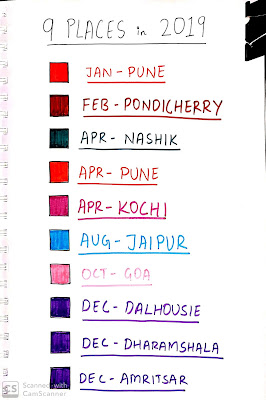 9 PLACES in 2019
JAN - PUNE
FEB - PONDICHERRY
APR - NASHIK
APR - PUNE
APR - KOCHI
AUG - JAIPUR
OCT - GOA
DEC - DALHOUSIE
DEC - DHARAMSHALA
DEC - AMRITSAR
CS Scanned with
CamScanner